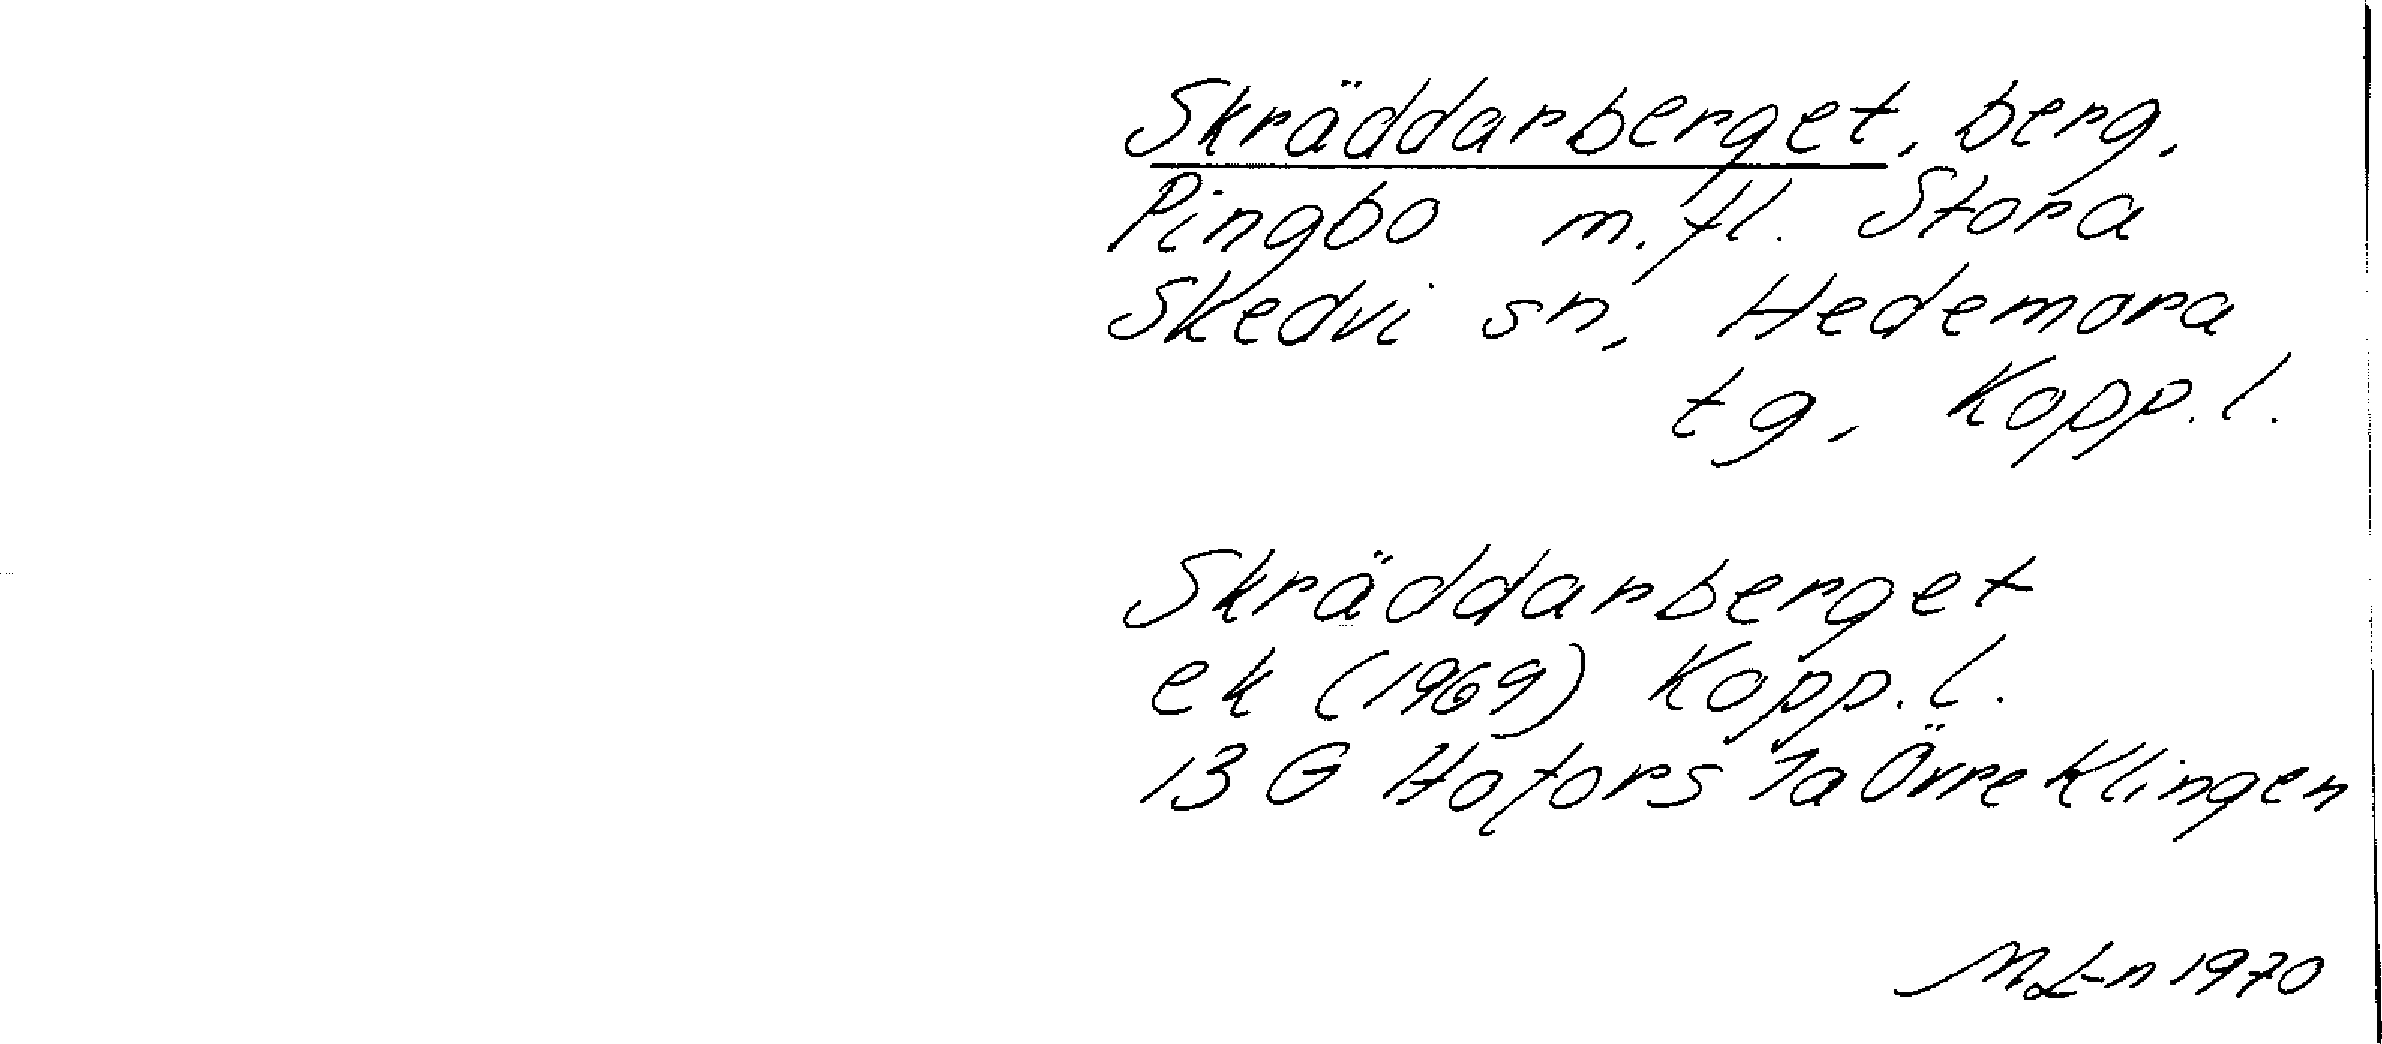 Skräddarberget, berg,
Pingbo m.fl. Stora
Skedvi sn, Hedemora
tg, Kopp.l.
Skräddarberget
ek (1969) Kopp.l.
13 G Hofors 1a Övre Klingen
M L-n 1970